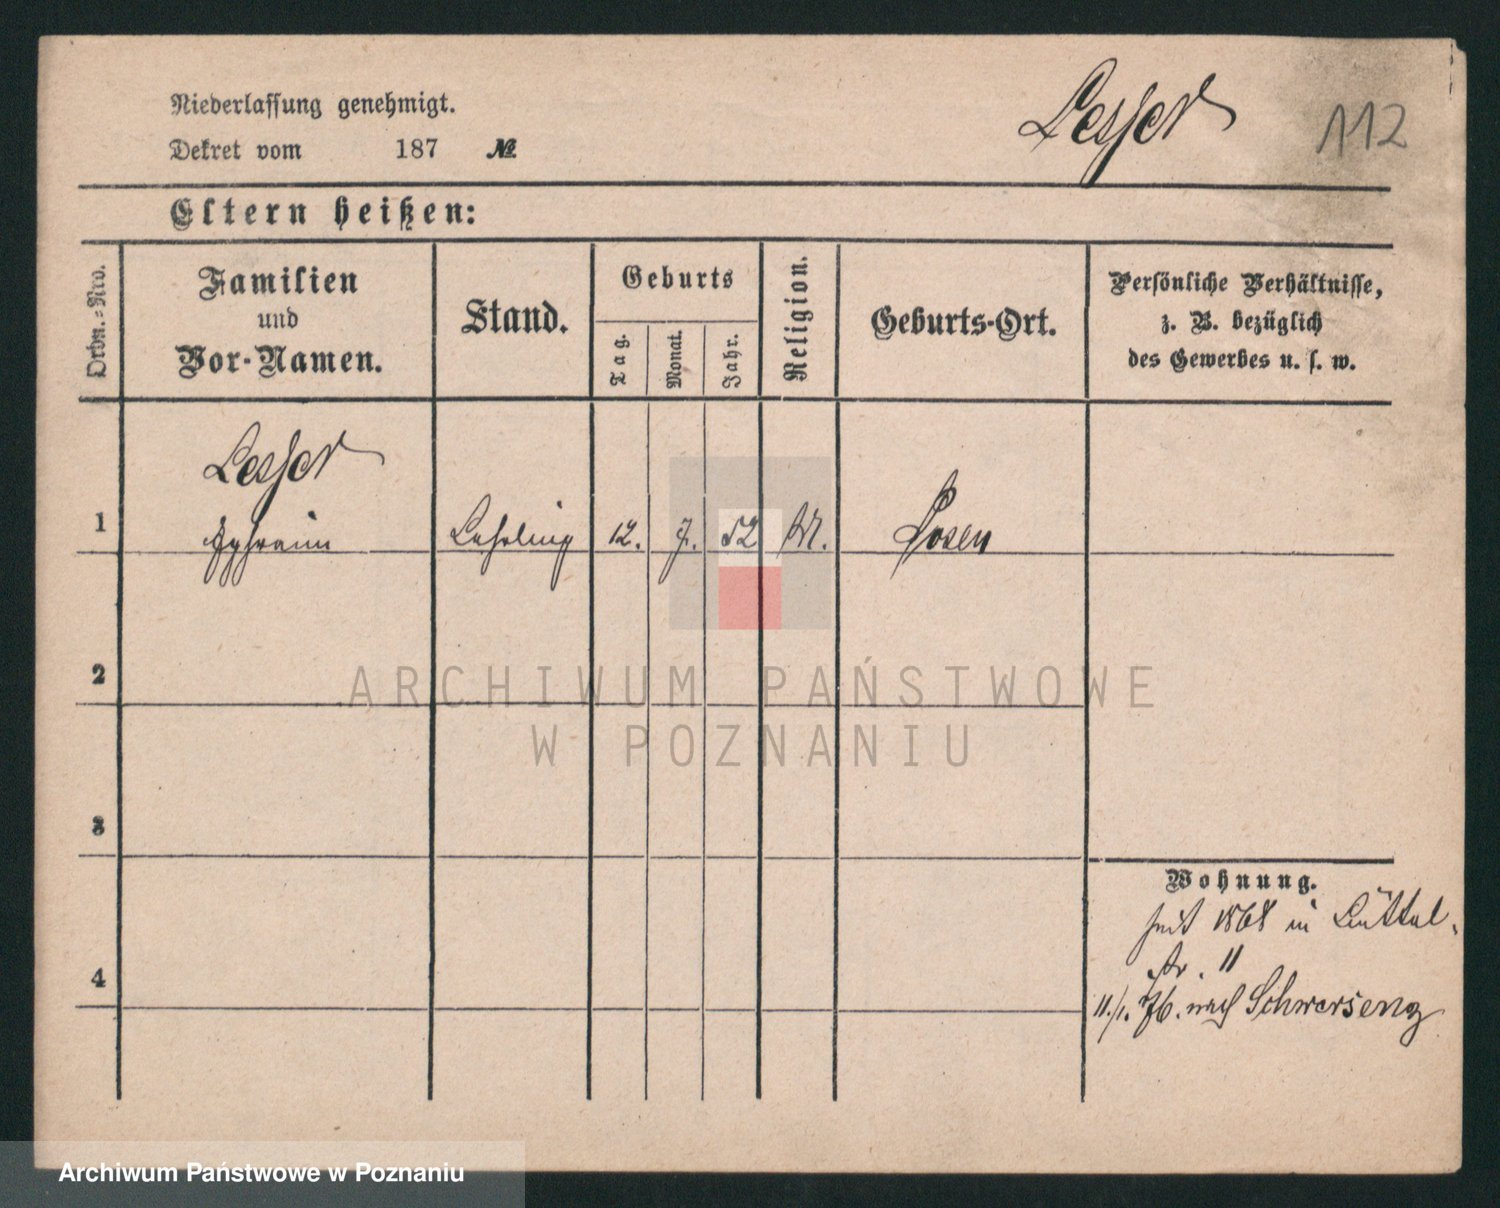 Niederlassung genehmigt.
Dekret vom 187 №
Lesser 112
Eltern heißen:
Ordn.-Nro.
Familien und Vor-Namen.
Stand.
Geburts
Tag.
Monat.
Jahr.
Religion.
Geburts-Ort.
Persönliche Verhältnisse,
z. B. bezüglich
des Gewerbes u. s. w.
Lesser
1 Ephraim Lehrling 12. 7. 52 M. Posen
2
3
4
Wohnung.
seit 1868 in Büttel-
str. 11
11./1. 76. nach Schwersenz
ARCHIWUM PAŃSTWOWE
W POZNANIU
Archiwum Państwowe w Poznaniu